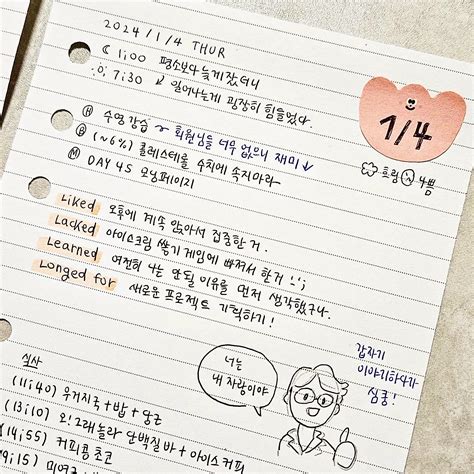 2024 / 1 / 4 THUR
1:00 평소보다 늦게 잤더니
7:30 일어나는게 굉장히 힘들었다.
1/4
트림 4쯤
Ⓗ 수영 강습 ~ 회원님들 너무 없으니 재미↓
Ⓑ (~6%) 콜레스테롤 수치에 속지마라
Ⓜ DAY 45 모닝페이지
Liked 오후에 계속 앉아서 집중한 거.
Lacked 아이스크림 쌓기 게임에 빠져서 한거
Learned 여전히 나는 안될 이유를 먼저 생각했구나.
Longed for 새로운 프로젝트 기획하기!
갑자기
이야기하다가
심쿵!
너는
내 자랑이야
식사
(11:40) 우거지국 + 밥 + 당근
(13:10) 오!그래놀라 단백질바 + 아이스커피
(14:55) 커피콩 초코
(19:15) 미역